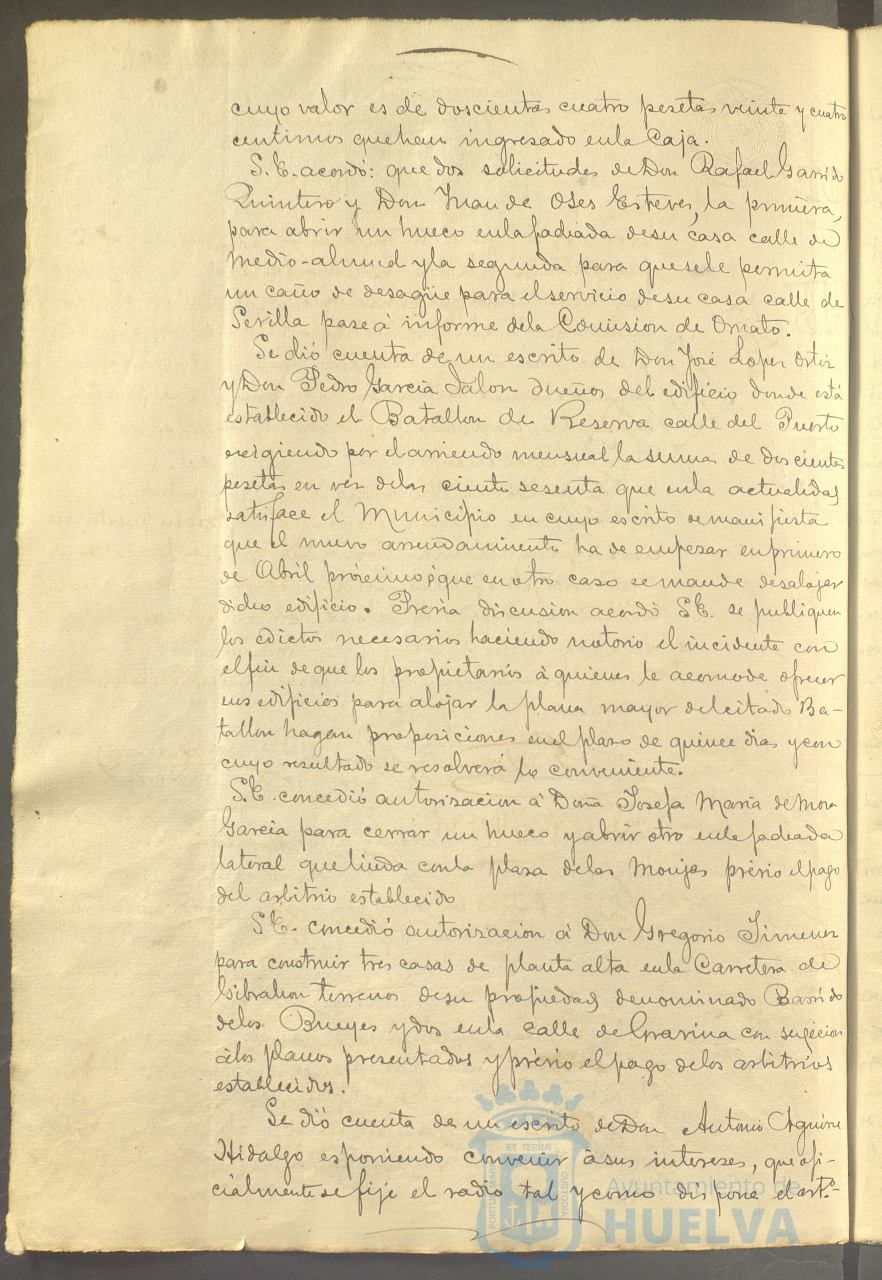 cuyo valor es de doscientas cuatro pesetas veinte y cuatro
centimos que han ingresado en la Caja.
S.E. acordó: que dos solicitudes de Don Rafael Garrido
Quintero y Don Juan de Oses Esteves, la primera,
para abrir un hueco en la fachada de su casa calle de
Medio-almud y la segunda para que se le permita
un caño de desagüe para el servicio de su casa calle de
Sevilla pase á informe de la Comision de Ornato.
Se dió cuenta de un escrito de Don José Lopez Ortiz
y Don Pedro Garcia Jalon dueños del edificio donde está
establecido el Batallon de Reserva calle del Puerto
exigiendo por el arriendo mensual la suma de doscientas
pesetas en vez de las ciento sesenta que en la actualidad
satisface el Municipio en cuyo escrito se manifiesta
que el nuevo arrendamiento ha de empezar en primero
de Abril próximo ó que en otro caso se mande desalojar
dicho edificio. Prévia discusion acordó S.E. se publiquen
los edictos necesarios haciendo notorio el incidente con
el fin de que los propietarios á quienes le acomode ofrecer
sus edificios para alojar la plana mayor del citado Ba-
tallon hagan proposiciones en el plazo de quince dias y con
cuyo resultado se resolverá lo conveniente.
S.E. concedió autorizacion á Doña Josefa Maria de Mora
Garcia para cerrar un hueco y abrir otro en la fachada
lateral que linda con la plaza de las Monjas prévio el pago
del arbitrio establecido
S.E. concedió autorizacion á Don Gregorio Jimenez
para construir tres casas de planta alta en la Carretera de
Gibraleon terrenos de su propiedad denominado Barrido
de los Bueyes y dos en la calle de Gravina con sugecion
á los planos presentados y prévio el pago de los arbitrios
establecidos.
Se dió cuenta de un escrito de Don Antonio Aguirre
Hidalgo esponiendo convenir á sus intereses, que ofi-
cialmente se fije el radio tal y como dispone el artº-
ET TERRÆ
Ayuntamiento de
HUELVA